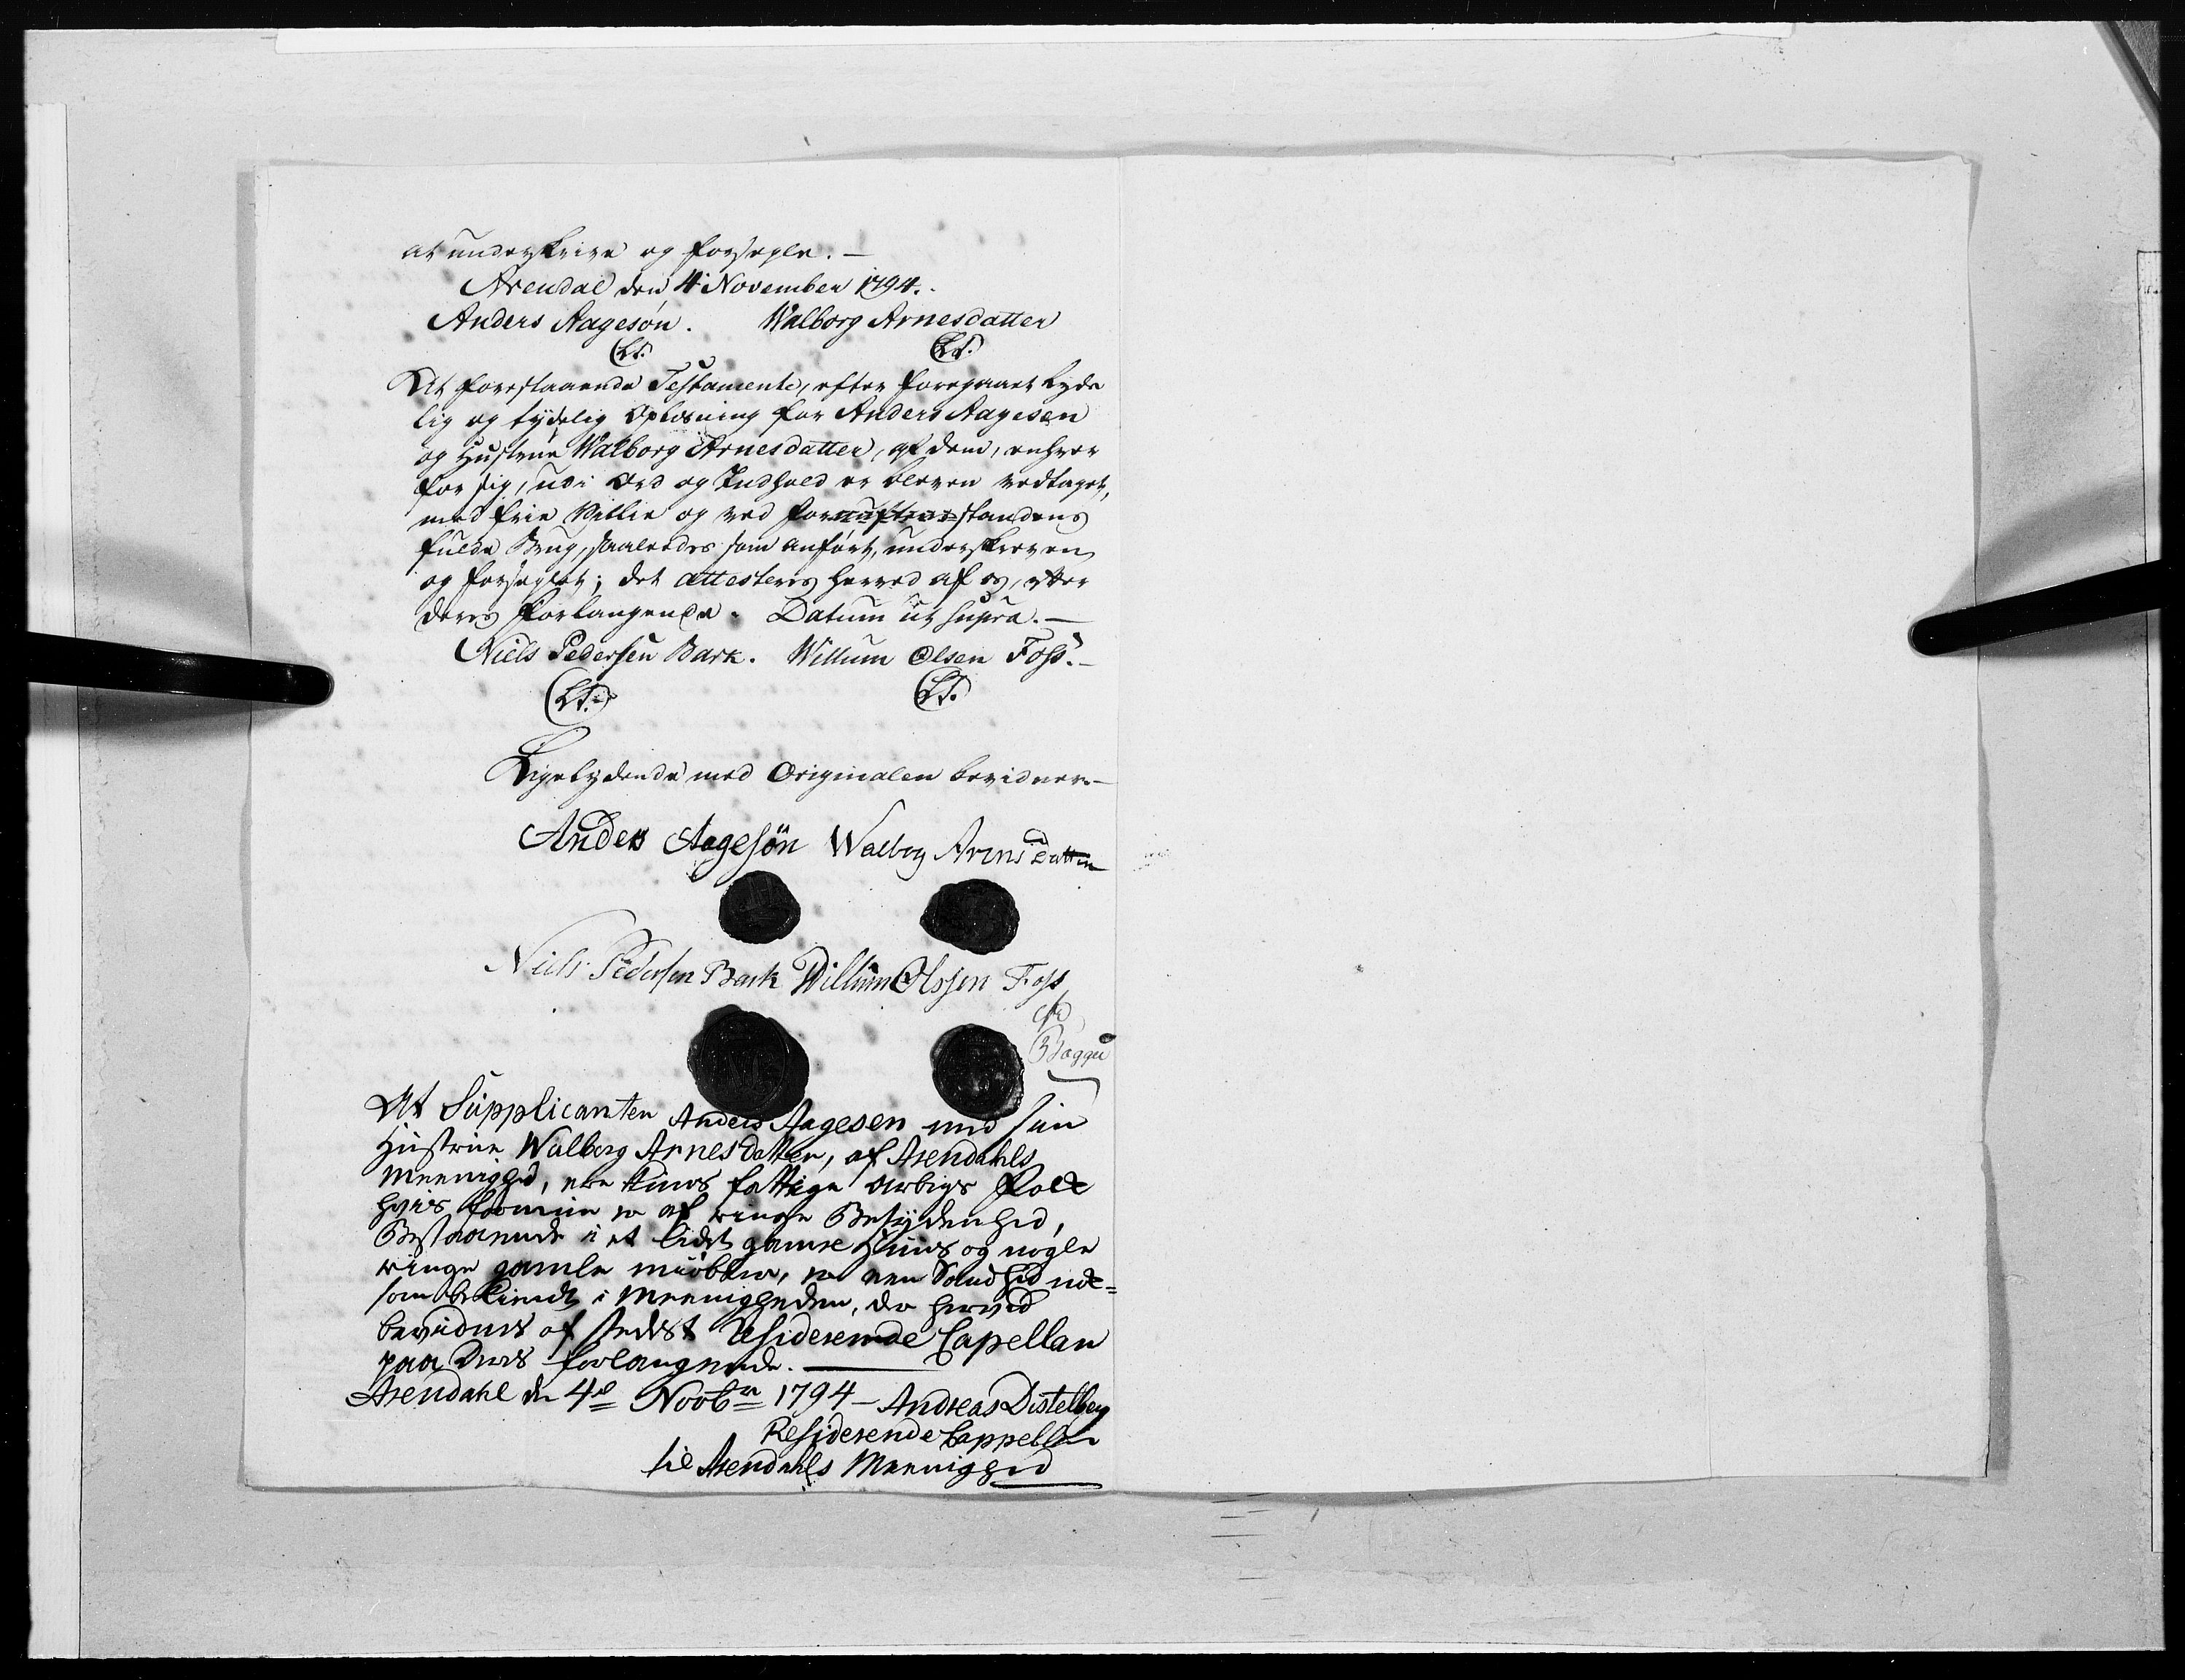 at underskrive og forsegle. —
Arendal den 4 November 1794.
Anders Aagesøn. Walborg Arnesdatter
(L.S.) (L.S.)
At forestaaende Testamente, efter foregaaet lyde
lig og tydelig Oplæsning for Anders Aagesen
og Hustrue Walborg Arnesdatter, af dem, enhver
for sig, udi Ord og Indhold er bleven vedtaget,
med frie Villie og ved for standens
fulde Brug, saaledes som anført, underskreven
og forseglet; det attesteres herved af os, efter
deres Forlangende. Datum ut supra. —
Niels Pedersen Bark. Willum Olsen Foss. —
(L.S.) (L.S.)
Ligelydende med Originalen bevidner. —
Anders Aagesøn Walborg Arnisdatter
Niels Pedersen Bark Willum Olssen Foss
Bagge
At Supplicanten Anders Aagesen med sin
Hustrue Walborg Arnesdatter, af Arendahls
Meenighed, ere tvende fattige Arbeids Folk
hvis formue er af ringe Betydenhed,
Bestaaende i et lidet gamle Huus og nogle
ringe gamle meubler, er een Sandhed
som bekiendt i Meenigheden, der herved
bevidnes af stedets Residerende Capellan
paa Deres forlangende. —
Arendahl d. 4de Novbr 1794 — Andreas Distelberg
Residerende Cappellan
til Arendahls Meenighed